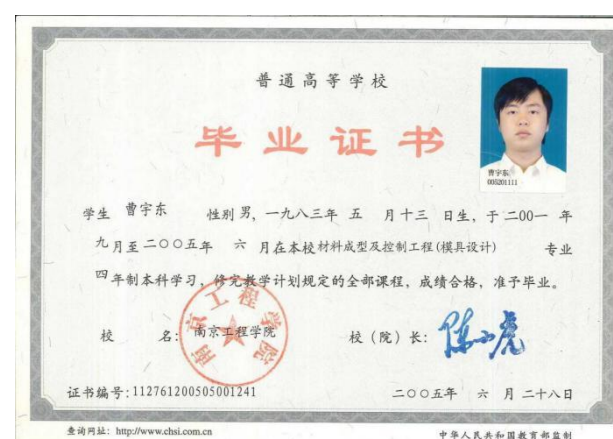 普通高等学校
毕业证书
曹宇东
005201111
学生 曹宇东 性别 男，一九八三年 五 月十三 日生，于二00一 年
九月至二○○五年 六 月在本校材料成型及控制工程(模具设计) 专业
四年制本科学习，修完教学计划规定的全部课程，成绩合格，准予毕业。
校 名：南京工程学院 校（院）长：陈小虎
南京工程学院
证书编号：112761200505001241 二○○五年 六 月 二十八日
查询网址：http://www.chsi.com.cn 中华人民共和国教育部监制